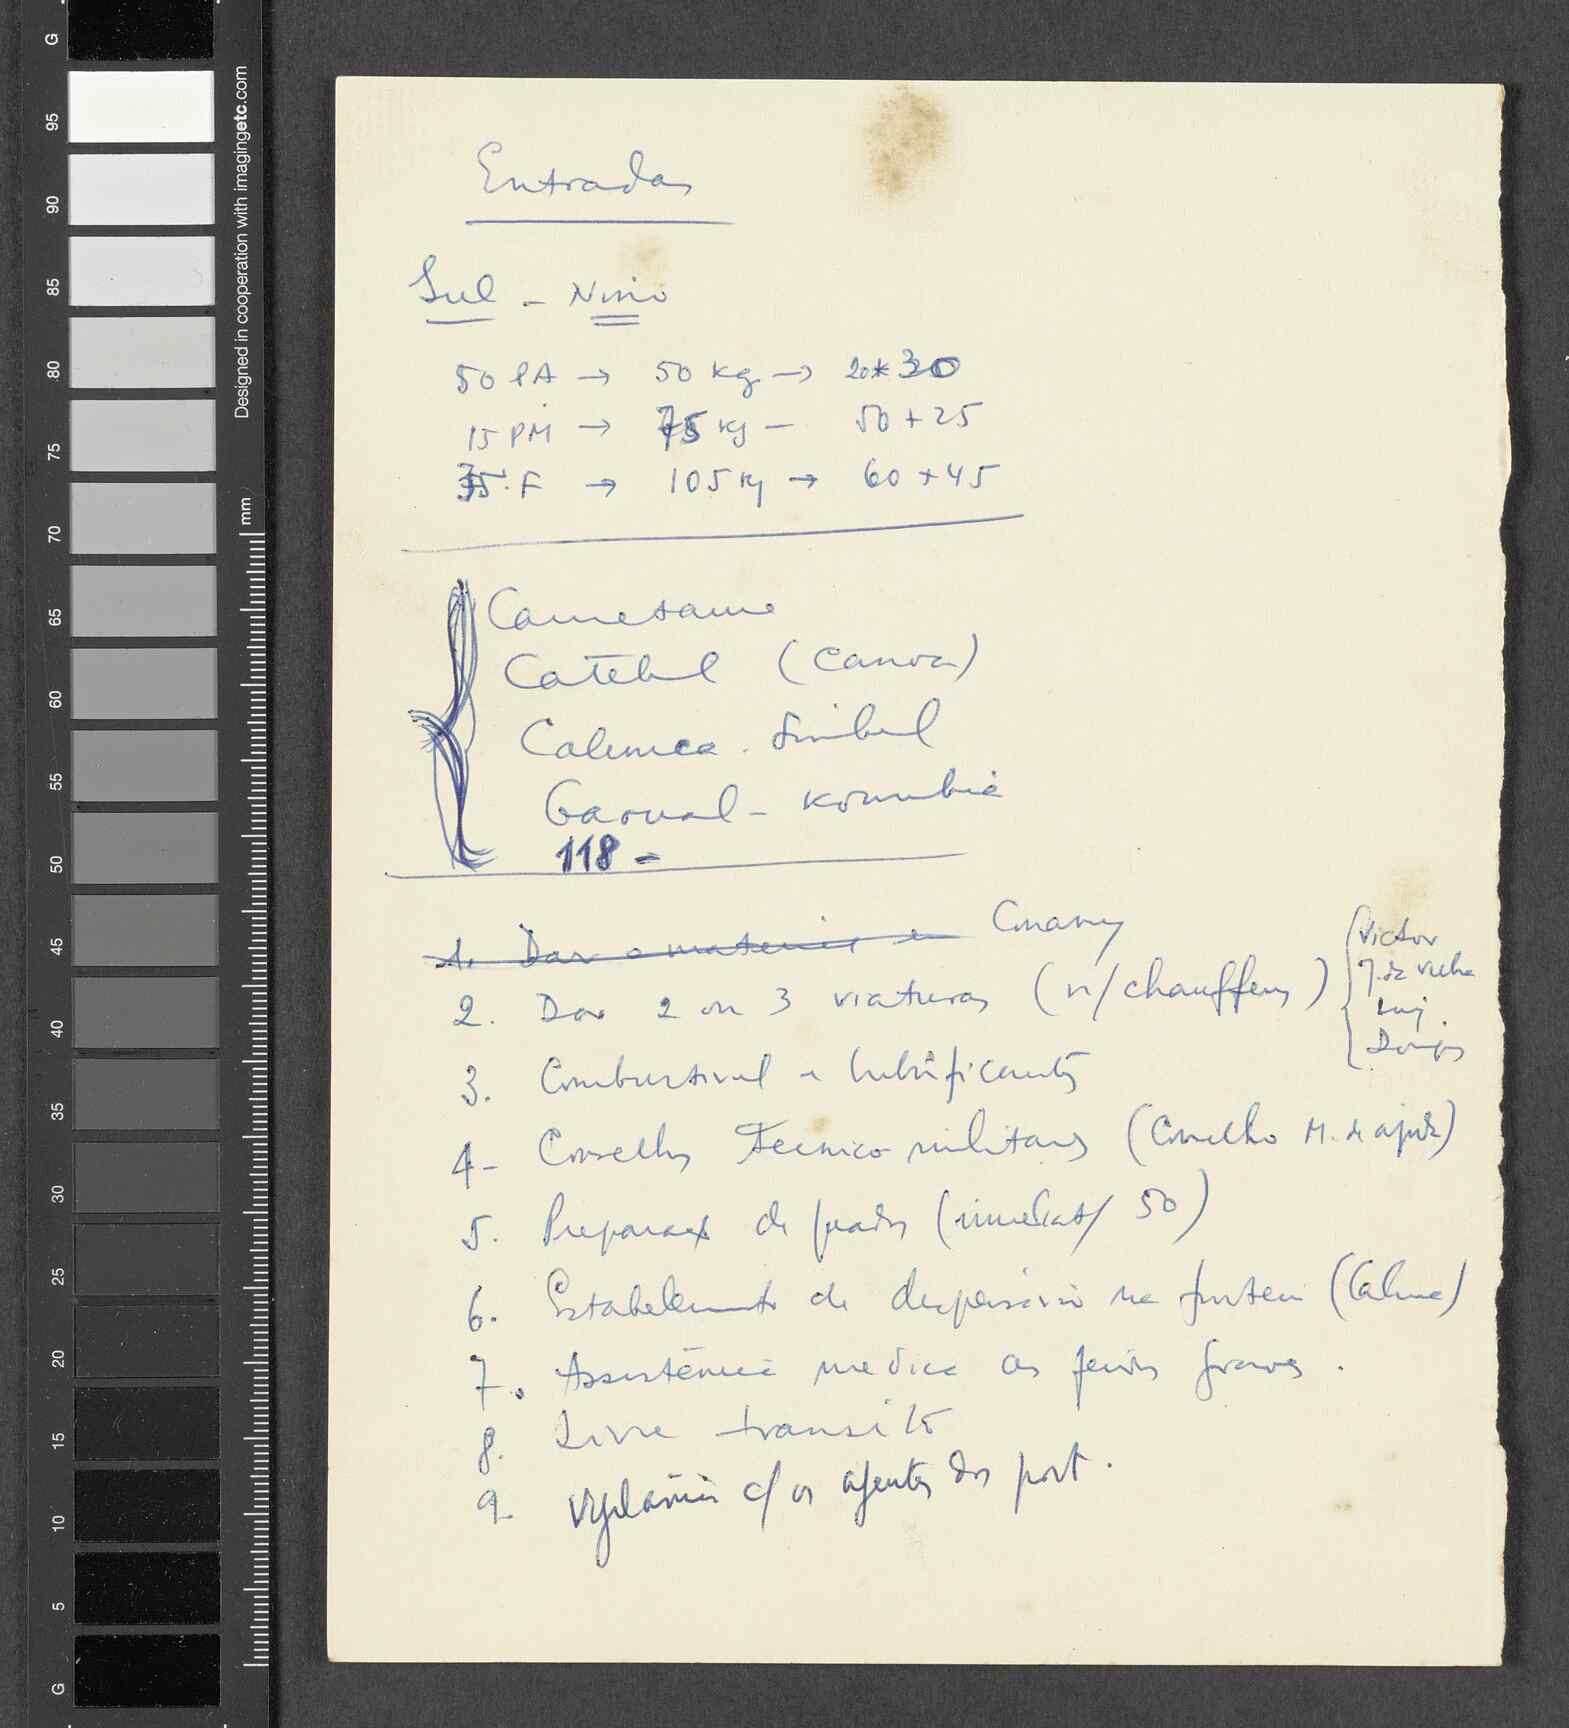 Entradas
Sul - Nino
50 PA → 50 kg → 20 + 30
15 PM → 75 kg - 50 + 25
35. F → 105 kg → 60 + 45
Camesame
Catebul (canoa)
Calumea. Simbul
Gaoual - Koumbia
118 -
1. Dar o material em Conakry
2. Dar 2 ou 3 viaturas (n/chauffeurs)
Victor
Luiz
Domingos
3. Combustivel e lubrificantes
4 - Conselhos Tecnico-militares (Conselho M.
5. Preparação de quadros (imediat/ 50)
6. Estabelecimento de dispensário na fronteira
7. Assistência medica aos feridos graves.
8. Livre transito
9. Vigilância c/ os agentes dos port.
G
95
90
85
80
75
70
65
60
55
50
45
40
35
30
25
20
15
10
5
G
Designed in cooperation with imagingetc.com
mm